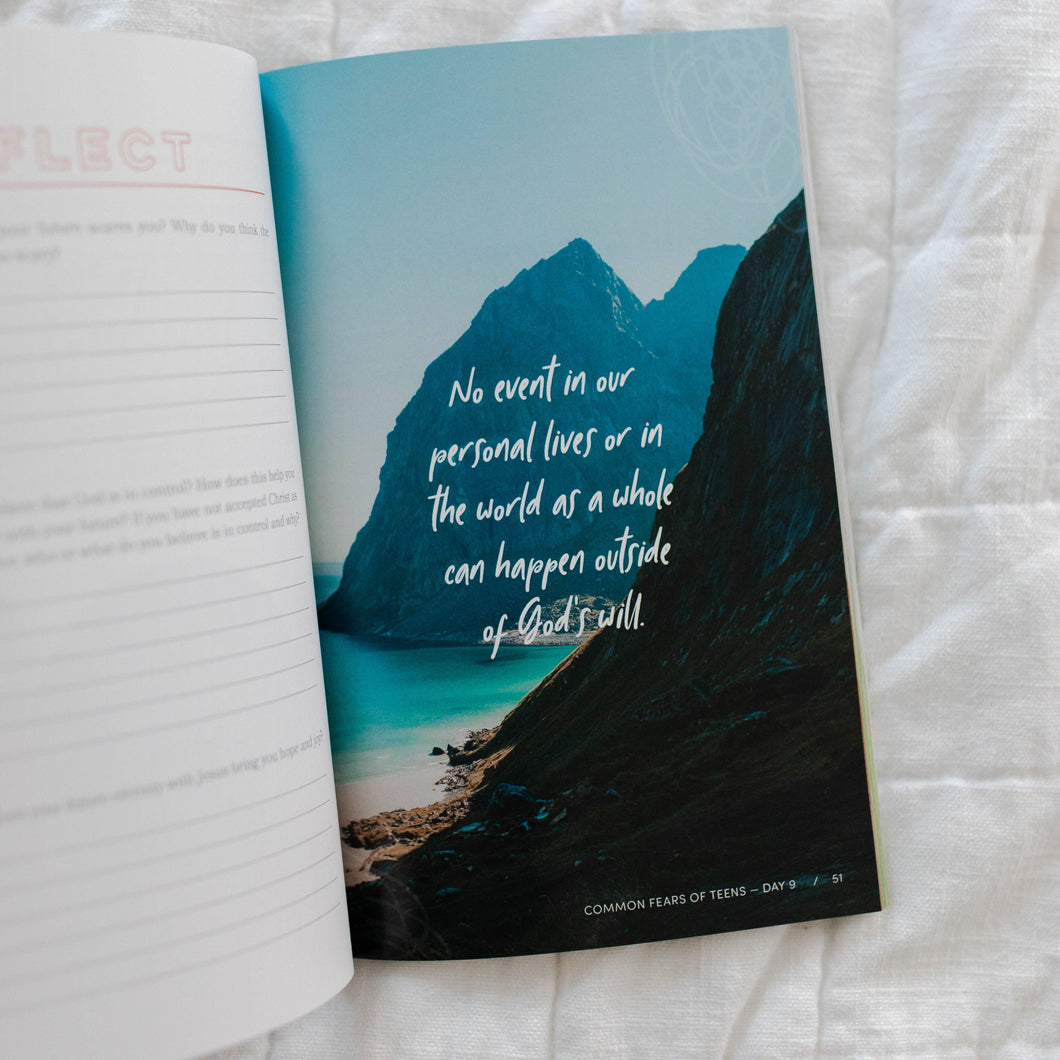 FLECT
your future scares you? Why do you think the
scary?
that God is in control? How does this help you
your future? If you have not accepted Christ as
who or what do you believe is in control and why?
your future eternity with Jesus bring you hope and joy?
No event in our
personal lives or in
the world as a whole
can happen outside
of God's will.
COMMON FEARS OF TEENS – DAY 9 / 51